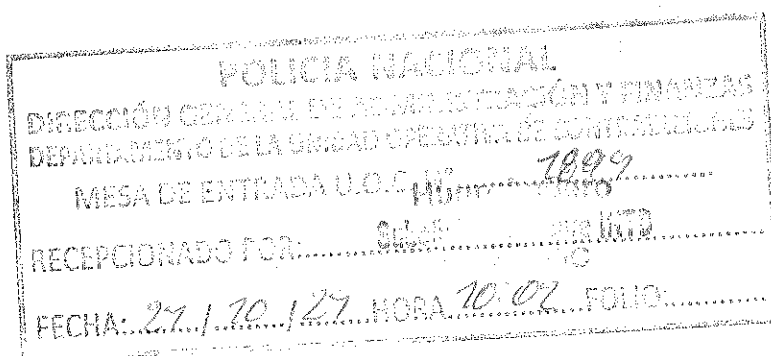 POLICIA NACIONAL
DIRECCIÓN GENERAL DE ADMINISTRACIÓN Y FINANZAS
DEPARTAMENTO DE LA UNIDAD OPERATIVA DE CONTRATACIONES
MESA DE ENTRADA U.O.C. 1899
RECEPCIONADO POR:
FECHA: 24 / 10 / 24 HORA 10:02 FOLIO: